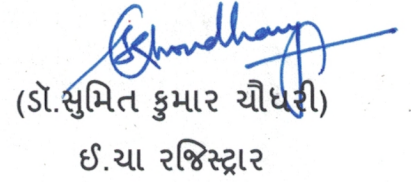 SKChoudhary
(ડૉ.સુમિત કુમાર ચૌધરી)
ઈ.ચા રજિસ્ટ્રાર